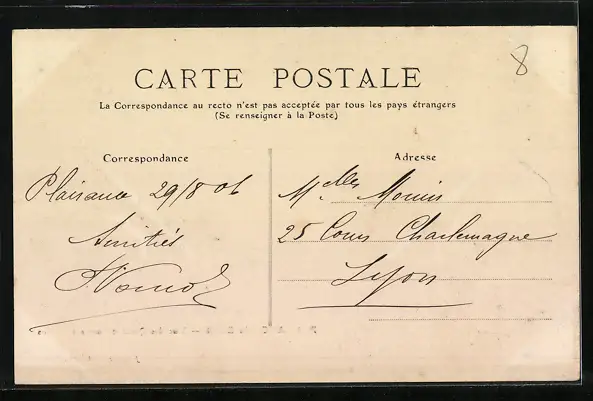 8
CARTE POSTALE
La Correspondance au recto n'est pas acceptée par tous les pays étrangers
(Se renseigner à la Poste)
Correspondance
Adresse
Plaisance 29/8 06
Amitiés
Melles
25 Cours Charlemagne
Lyon